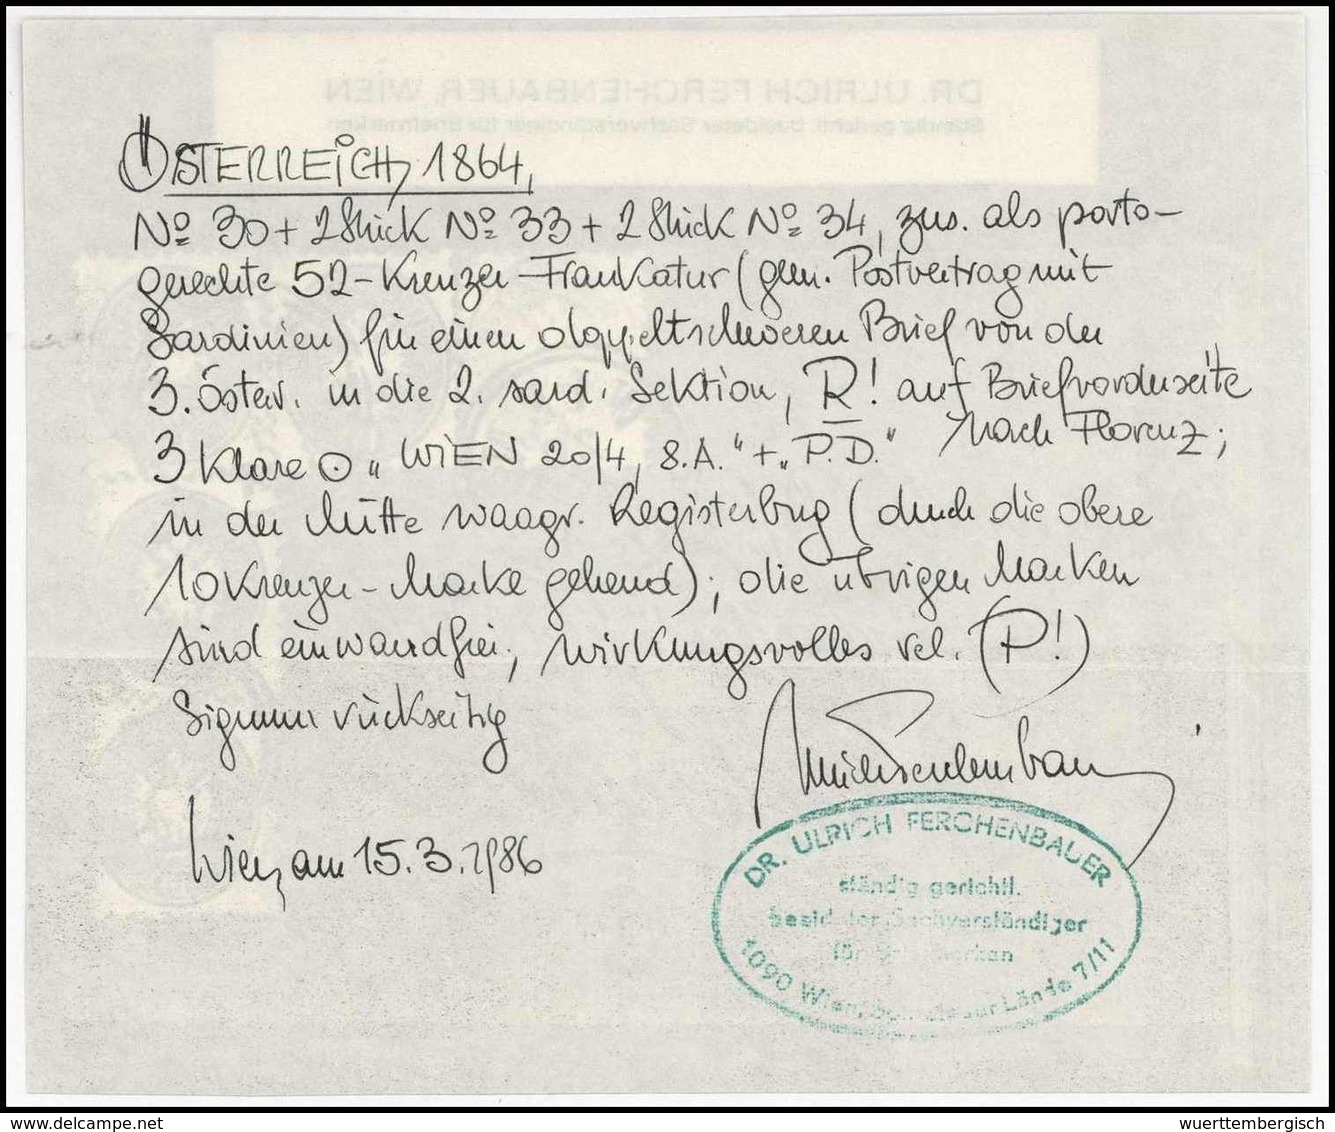 DR. ULRICH FERCHENBAUER, WIEN
Ständig gerichtl. beeideter Sachverständiger für Briefmarken
ÖSTERREICH, 1864,
Nº 30 + 2 Stück Nº 33 + 2 Stück Nº 34, zus. als porto-
gerechte 52-Kreuzer-Frankatur (gem. Postvertrag mit
Sardinien) für einen doppeltschweren Brief von der
3. österr. in die 2. sard. Sektion, R! auf Briefvorderseite
nach Florenz;
3 klare ⊙ „WIEN 20/4, 8.A." + „P.D."
in der Mitte waagr. Registerbug (durch die obere
10 Kreuzer-Marke gehend); die übrigen Marken
sind einwandfrei, wirkungsvolles rel. (P!)
Signum rückseitig
Wien, am 15.3.1986
DR. ULRICH FERCHENBAUER
ständig gerichtl.
beeideter Sachverständiger
für Briefmarken
1090 Wien, Lände 7/11
wuerttembergisch